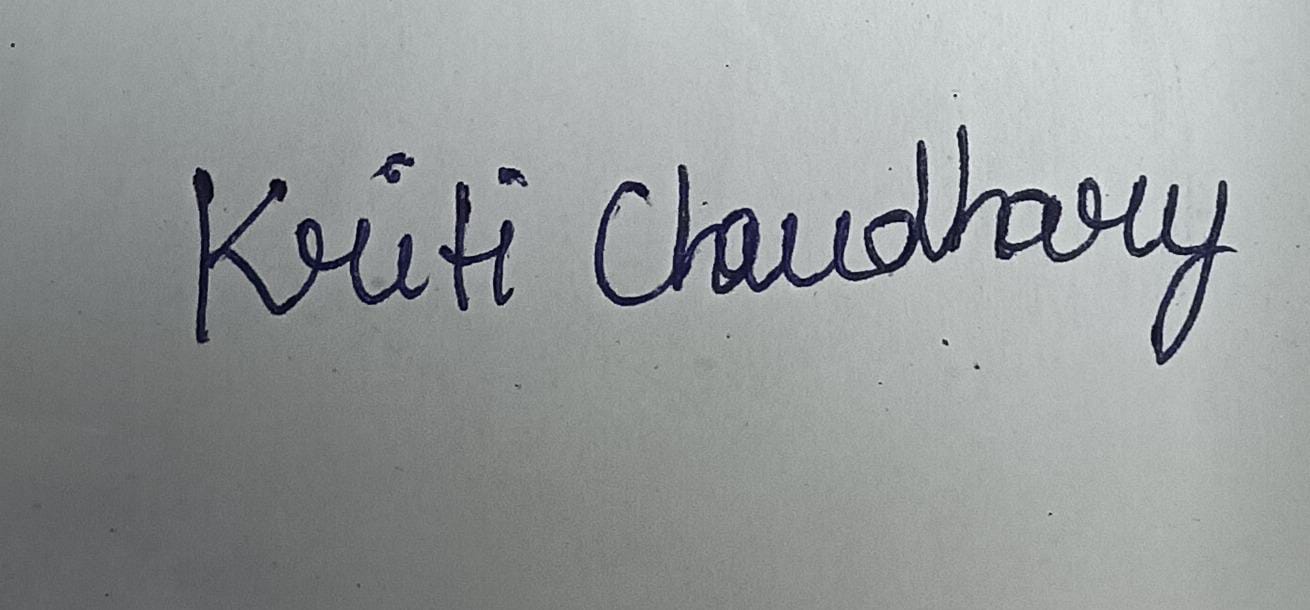 Kriti Chaudhary